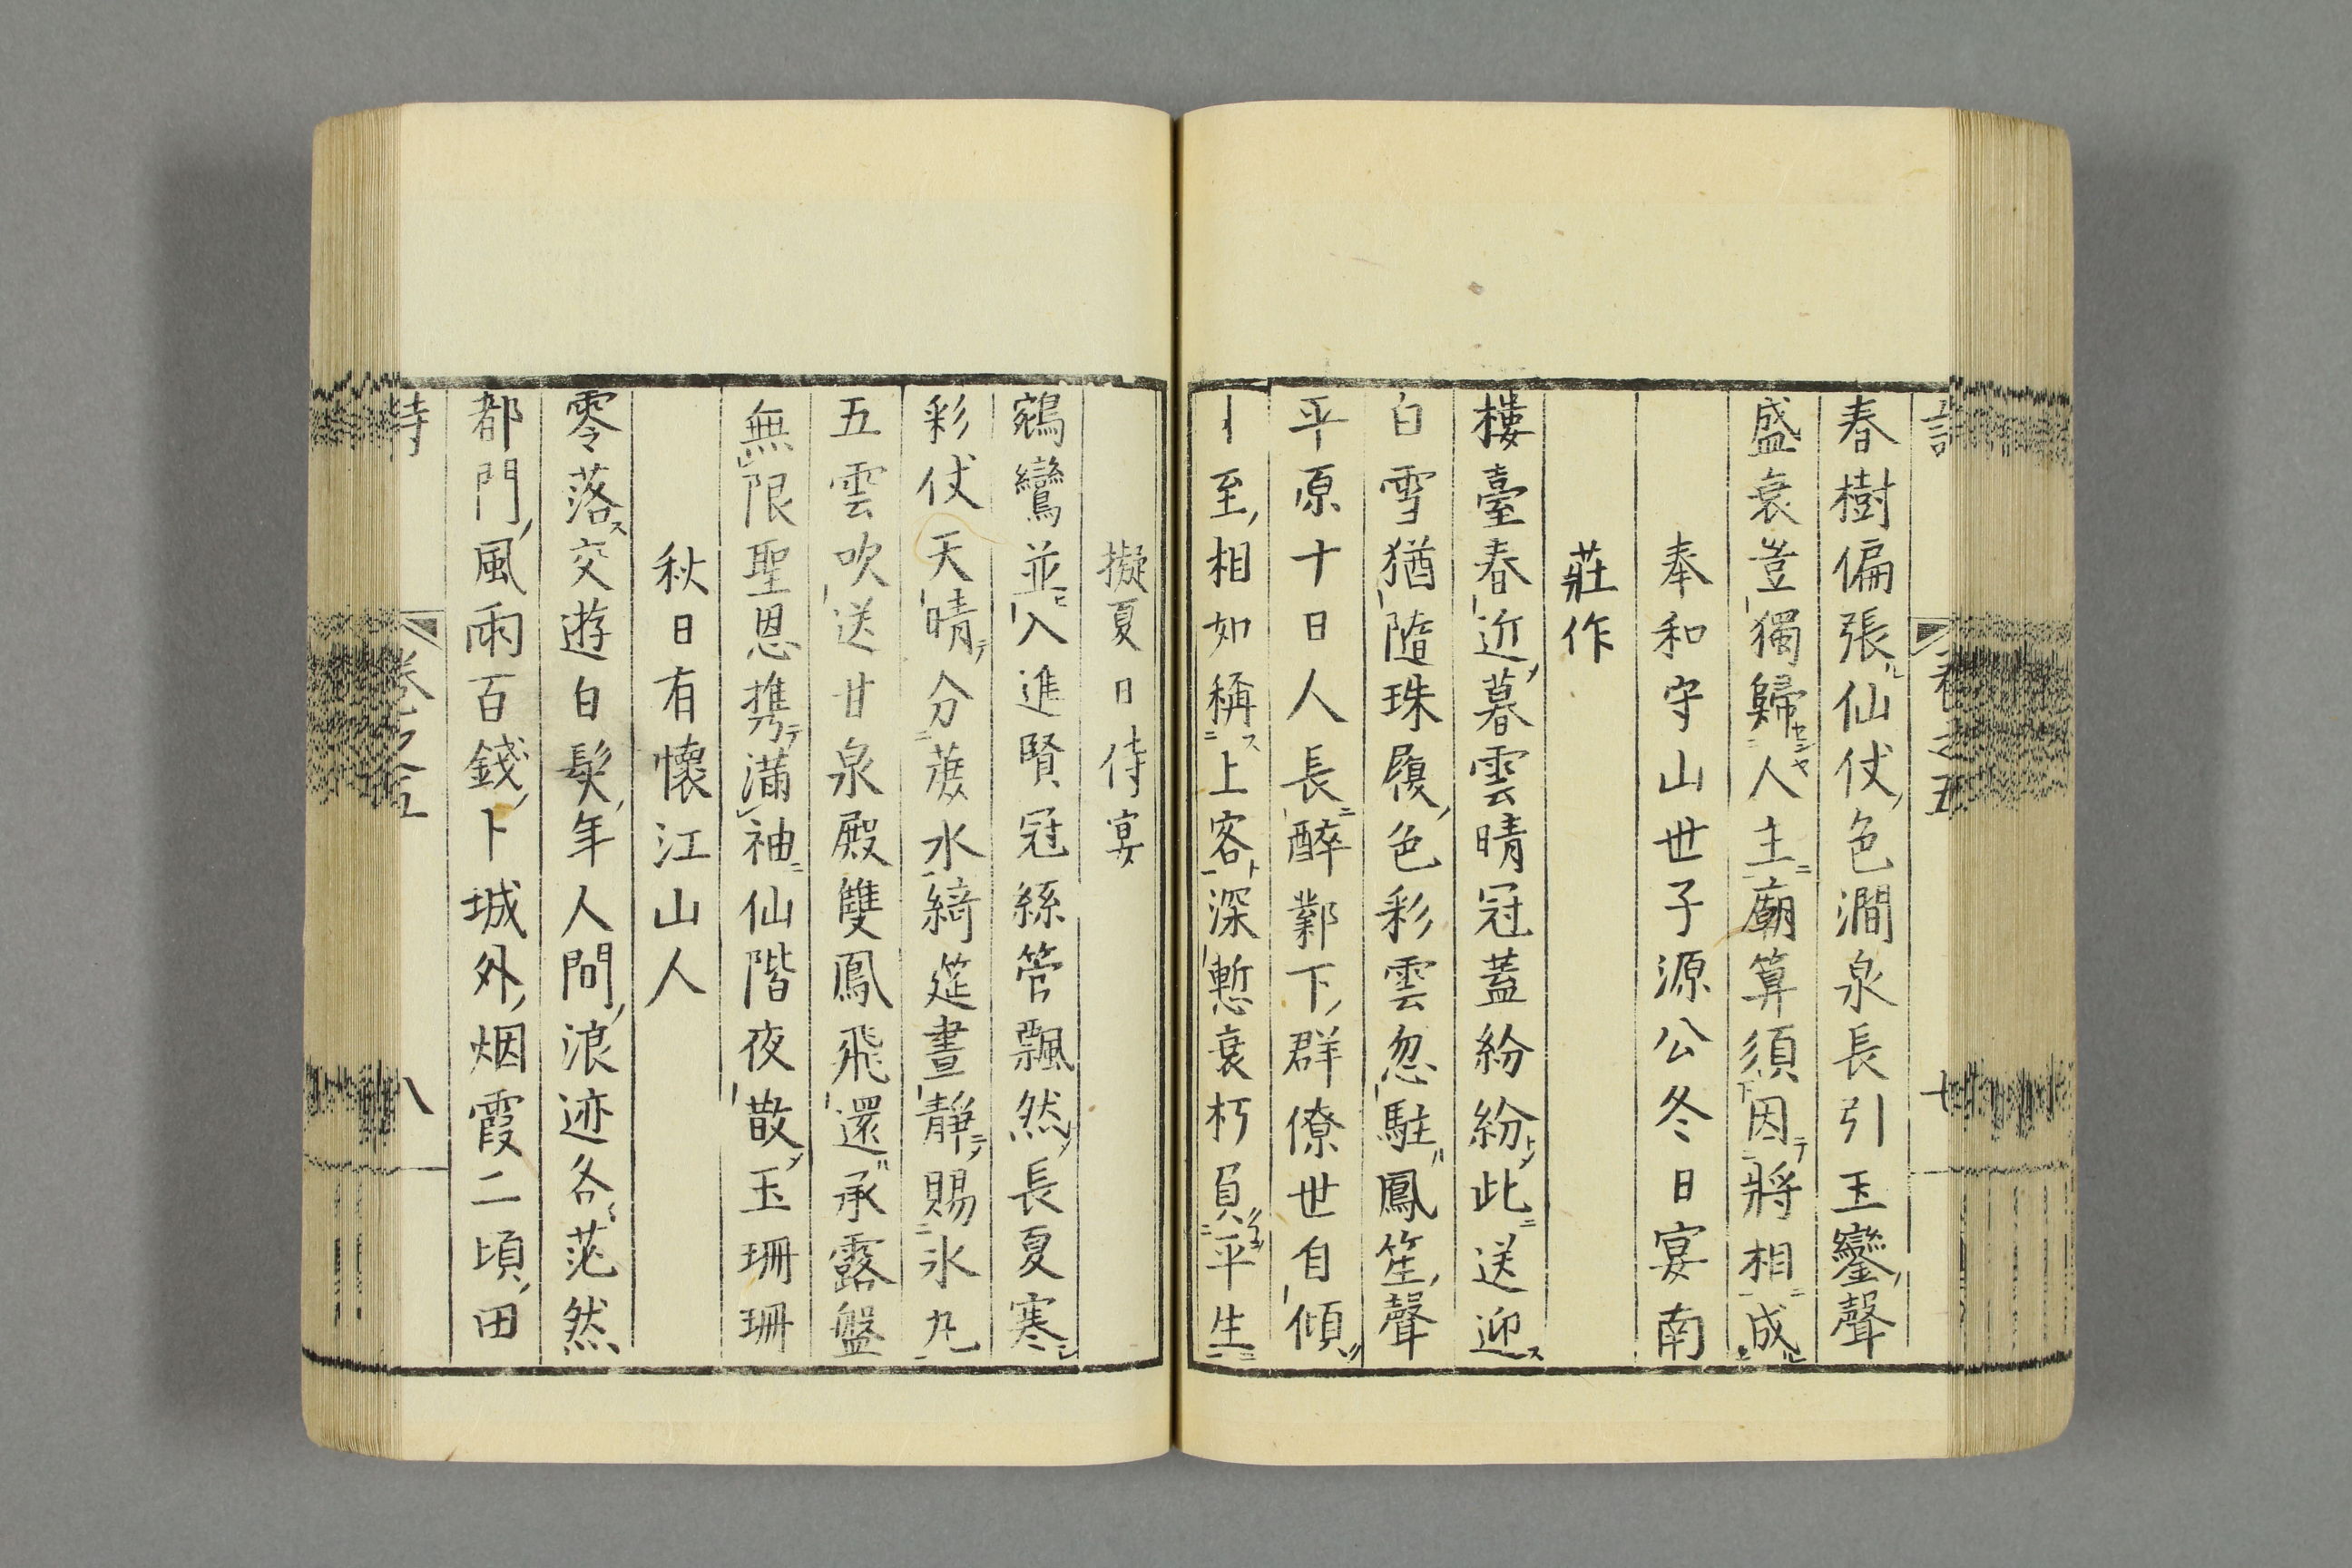 春樹偏張仙仗色澗泉長引玉鑾聲
盛衰豈獨歸人主廟算須因將相成
奉和守山世子源公冬日宴南
莊作
樓臺春近暮雲晴冠蓋紛紛此送迎
白雪猶隨珠履色彩雲忽駐鳳笙聲
平原十日人長醉鄴下群僚世自傾
至相如稱上客深慙衰朽負平生
擬夏日侍宴
鵷鸞並入進賢冠絲管飄然長夏寒
彩仗天晴分薦水綺筵晝靜賜氷丸
五雲吹送甘泉殿雙鳳飛還承露盤
無限聖恩携滿袖仙階夜散玉珊珊
秋日有懷江山人
零落交遊白髮年人間浪迹各茫然
都門風雨百錢卜城外烟霞二頃田
卷之五
八